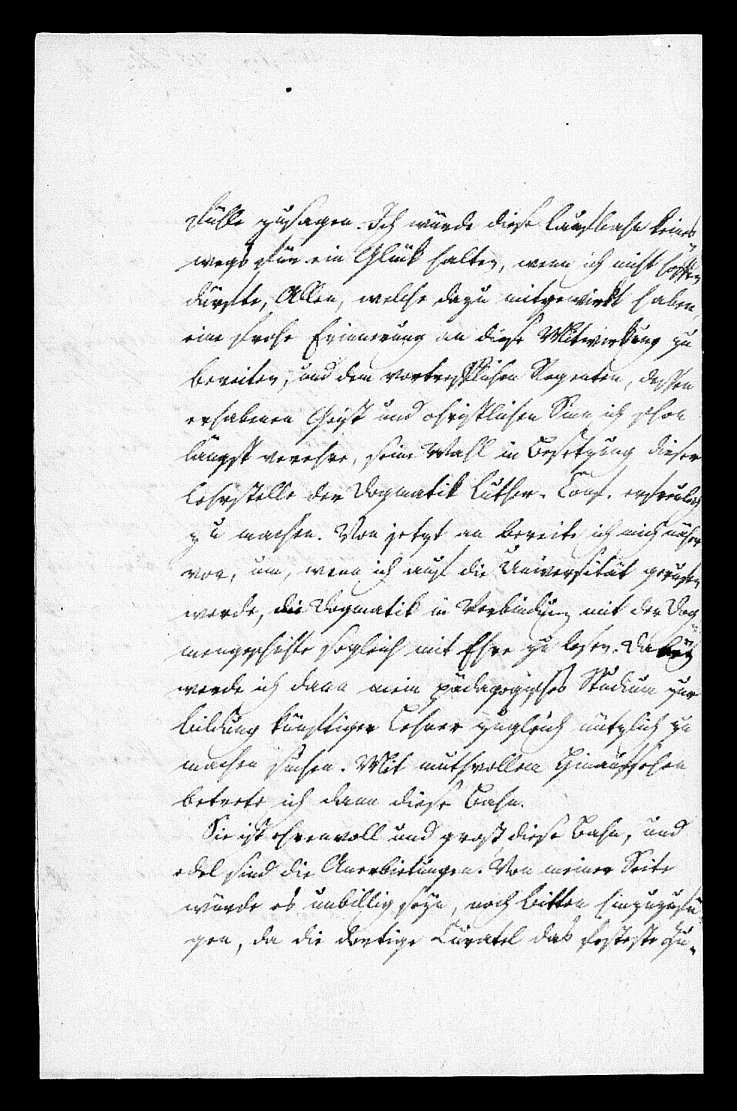 Fülle zusagen. Ich würde diese Laufbahn keines
wegs für ein Glück halten, wenn ich nicht hoffen
dürfte, Allen, welche dazu mitgewirkt haben,
eine frohe Erinnerung an diese Mitwirkung zu
bereiten, und dem vortrefflichen Regenten, dessen
erhabenen Geist und christlichen Sinn ich schon
längst verehre, seine Wahl in Besetzung dieser
Lehrstelle der Dogmatik Luther. Conf. erfreulich
zu machen. Von jetzt an bereite ich mich näher
vor, um, wenn ich auf die Universität gerufen
werde, die Dogmatik in Verbindung mit der Dog-
mengeschichte sogleich mit Ehre zu lesen. Dabey
werde ich dann mein pädagogisches Studium zur
Bildung künftiger Lehrer zugleich nützlich zu
machen suchen. Mit muthvollem Hinaufsehen
betrete ich dann diese Bahn.
Sie ist ehrenvoll und groß diese Bahn, und
edel sind die Anerbietungen. Von meiner Seite
würde es unbillig seyn, noch Bitten hinzuzufü-
gen, da die dortige Curatel das festeste Zu-